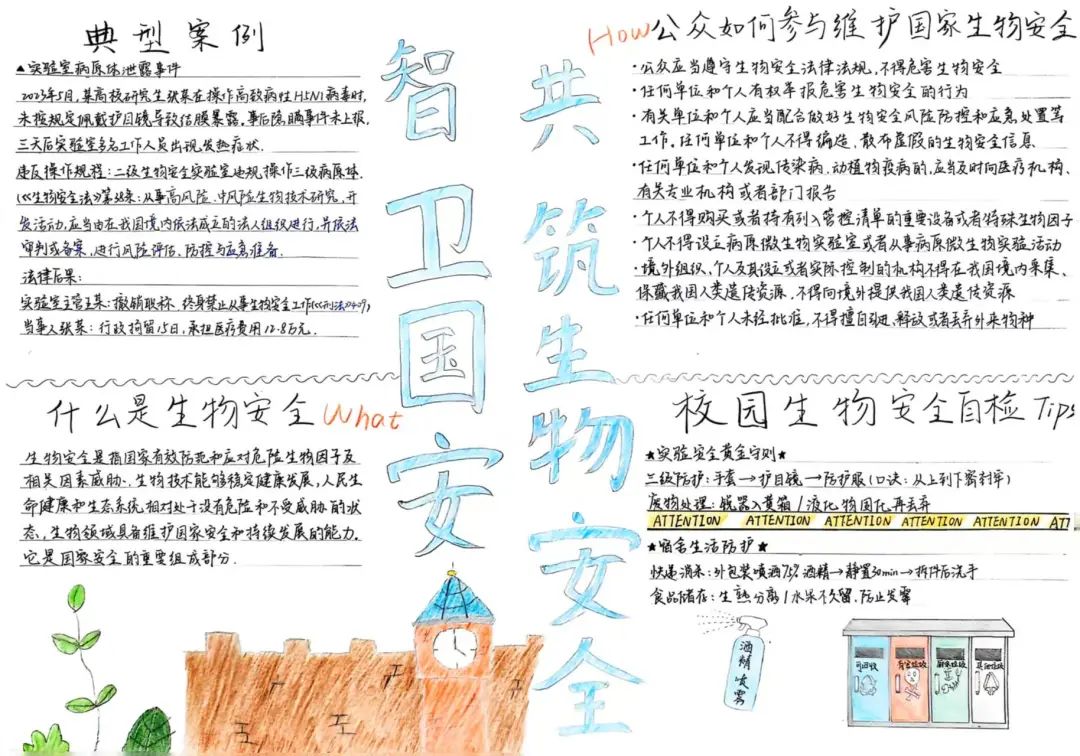 典型案例
▲实验室病原体泄露事件
2023年5月,某高校研究生张某在操作高致病性H5N1病毒时,
未按规定佩戴护目镜导致结膜暴露。事后隐瞒事件未上报,
三天后实验室多名工作人员出现发热症状.
违反操作规程:二级生物安全实验室违规操作三级病原体.
(《生物安全法》第38条:从事高风险、中风险生物技术研究、开
发活动,应当由在我国境内依法成立的法人组织进行,并依法
审判或备案,进行风险评估、防控与应急准备.
法律后果:
实验室主管王某:撤销职称、终身禁止从事生物安全工作(《刑法》409),
当事人张某:行政拘留15日,承担医疗费用12.8万元.
什么是生物安全 What
生物安全是指国家有效防范和应对危险生物因子及
相关因素威胁、生物技术能够稳定健康发展,人民生
命健康和生态系统相对处于没有危险和不受威胁的状
态、生物领域具备维护国家安全和持续发展的能力.
它是国家安全的重要组成部分.
智卫国安
共筑生物安全
How公众如何参与维护国家生物安全
·公众应当遵守生物安全法律法规,不得危害生物安全
·任何单位和个人有权举报危害生物安全的行为
·有关单位和个人应当配合做好生物安全风险防控和应急处置等
工作.任何单位和个人不得编造、散布虚假的生物安全信息
·任何单位和个人发现传染病、动植物疫病的,应当及时向医疗机构、
有关专业机构或者部门报告
·个人不得购买或者持有列入管控清单的重要设备或者特殊生物因子
·个人不得设立病原微生物实验室或者从事病原微生物实验活动
·境外组织、个人及其设立或者实际控制的机构不得在我国境内采集、
保藏我国人类遗传资源,不得向境外提供我国人类遗传资源
·任何单位和个人未经批准,不得擅自引进、释放或者丢弃外来物种
校园生物安全自检Tips
★实验安全黄金守则★
三级防护:手套→护目镜→防护服(口诀:从上到下密封牢)
废物处理:锐器入黄箱/液化物固化再丢弃
ATTENTION ATTENTION ATTENTION ATTENTION ATTENTION ATT
★宿舍生活防护★
快递消杀:外包装喷洒75%酒精→静置30min→拆件后洗手
食品储存:生熟分离/水果不久留,防止发霉
酒精喷雾
可回收
有害垃圾
厨余垃圾
其他垃圾